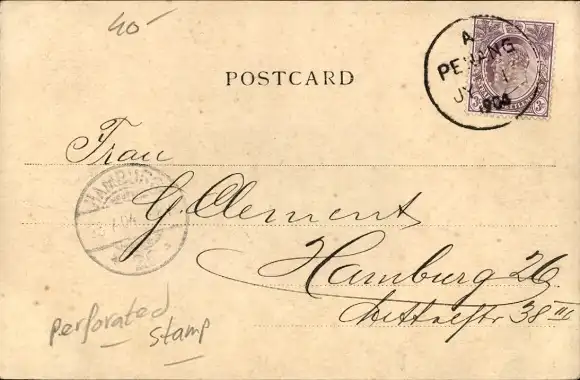 40-
A
PENANG
JY 1
1904
POSTCARD
Frau
HAMBURG
G. Clement
Hamburg 26
38 III
perforated
stamp